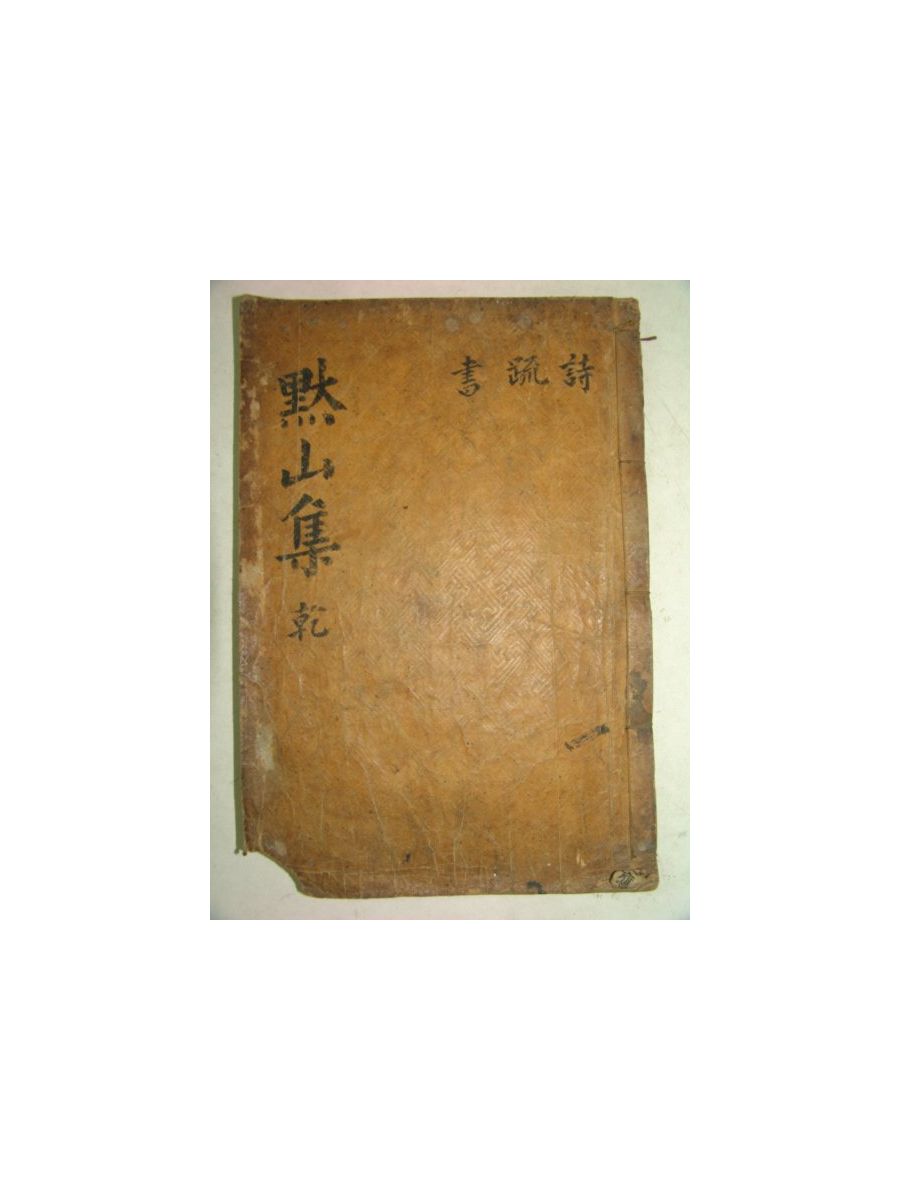 黙山集 乾
詩 疏 書